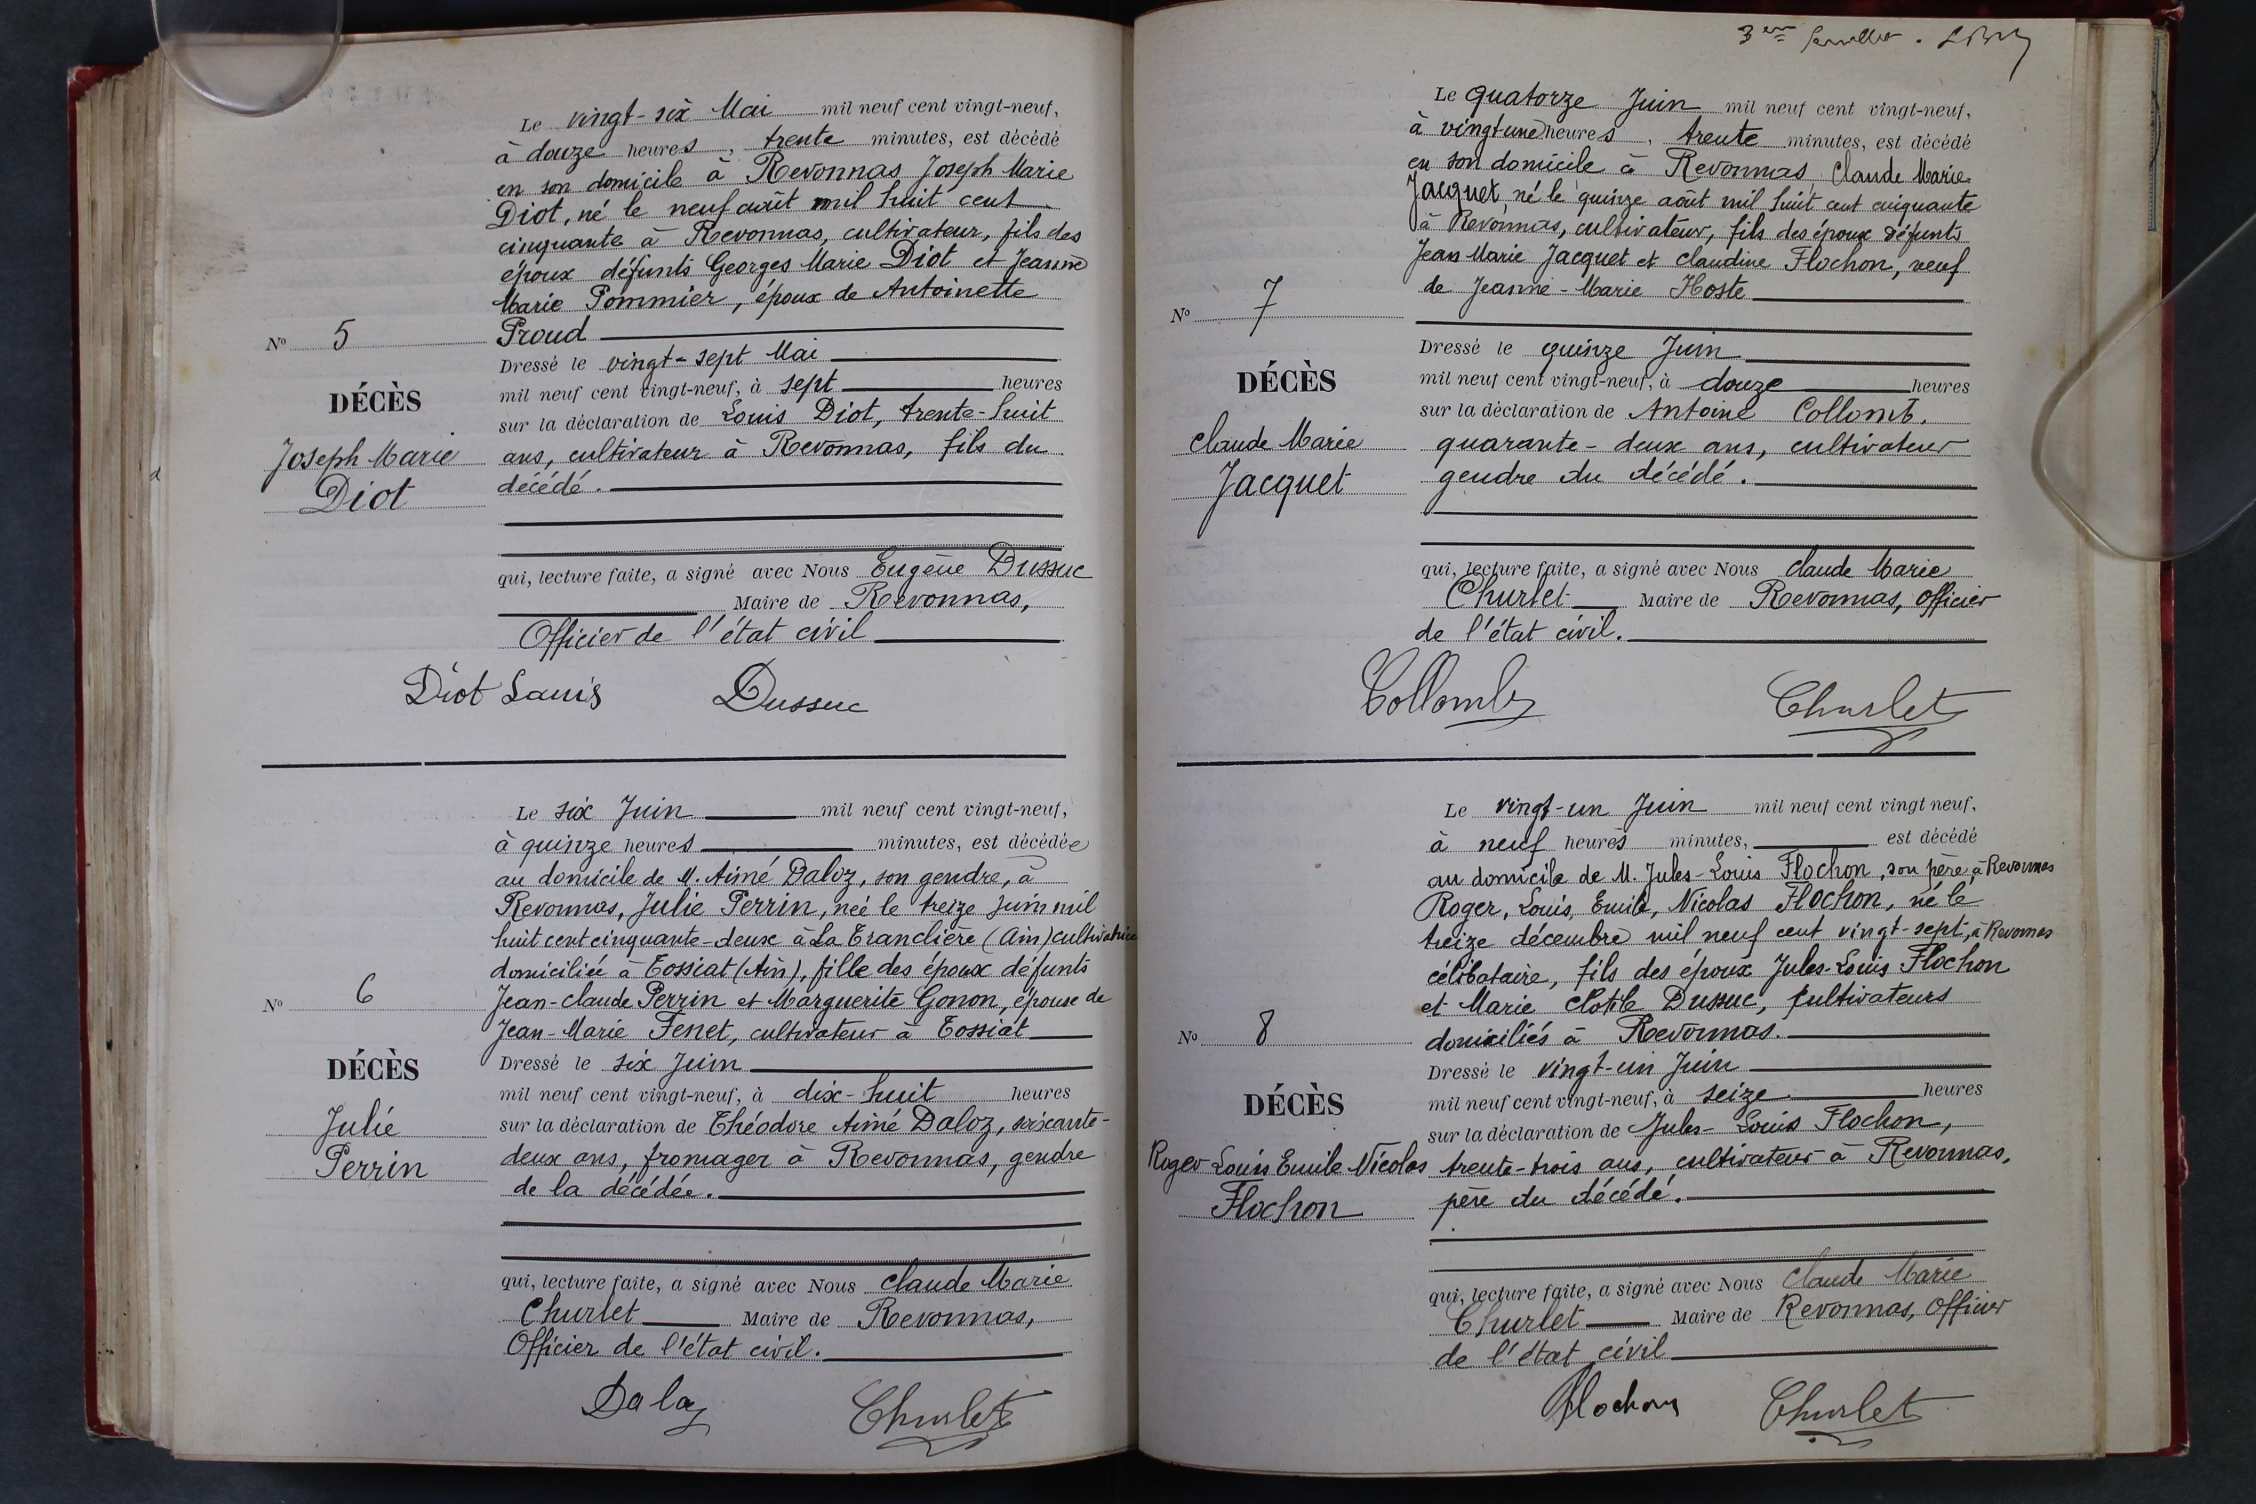 Le vingt-six Mai mil neuf cent vingt-neuf,
à douze heures, trente minutes, est décédé
en son domicile à Revonnas Joseph Marie
Diot, né le neuf août mil huit cent
cinquante à Revonnas, cultivateur, fils des
époux défunts Georges Marie Diot et Jeanne
Marie Pommier, époux de Antoinette
Proud
No 5
DÉCÈS
Joseph Marie
Diot
Dressé le vingt-sept Mai
mil neuf cent vingt-neuf, à sept heures
sur la déclaration de Louis Diot, trente-huit
ans, cultivateur à Revonnas, fils du
décédé.
qui, lecture faite, a signé avec Nous Eugène Dussuc
Maire de Revonnas,
Officier de l'état civil
Diot Louis Dussuc
Le six Juin mil neuf cent vingt-neuf,
à quinze heures minutes, est décédée
au domicile de M. Aimé Daloz, son gendre, à
Revonnas, Julie Perrin, née le treize juin mil
huit cent cinquante-deux à La Tranclière (Ain) cultivatrice
domiciliée à Tossiat (Ain), fille des époux défunts
Jean-Claude Perrin et Marguerite Gonon, épouse de
Jean-Marie Fenet, cultivateur à Tossiat
No 6
DÉCÈS
Julie
Perrin
Dressé le six Juin
mil neuf cent vingt-neuf, à dix-huit heures
sur la déclaration de Théodore Aimé Daloz, soixante-
deux ans, fromager à Revonnas, gendre
de la décédée.
qui, lecture faite, a signé avec Nous Claude Marie
Churlet Maire de Revonnas,
Officier de l'état civil.
Daloz Churlet
3eme feuillet.
Le quatorze Juin mil neuf cent vingt-neuf,
à vingt une heures, trente minutes, est décédé
en son domicile à Revonnas, Claude Marie
Jacquet, né le quinze août mil huit cent cinquante
à Revonnas, cultivateur, fils des époux défunts
Jean Marie Jacquet et Claudine Flochon, veuf
de Jeanne-Marie Hoste
No 7
DÉCÈS
Claude Marie
Jacquet
Dressé le quinze Juin
mil neuf cent vingt-neuf, à douze heures
sur la déclaration de Antoine Collomb,
quarante-deux ans, cultivateur
gendre du décédé.
qui, lecture faite, a signé avec Nous Claude Marie
Churlet Maire de Revonnas, Officier
de l'état civil.
Collomb Churlet
Le vingt-un Juin mil neuf cent vingt neuf,
à neuf heures minutes, est décédé
au domicile de M. Jules-Louis Flochon, son père, à Revonnas
Roger, Louis, Emile, Nicolas Flochon, né le
treize décembre mil neuf cent vingt-sept, à Revonnas
célibataire, fils des époux Jules-Louis Flochon
et Marie Clotile Dussuc, cultivateurs
domiciliés à Revonnas.
No 8
DÉCÈS
Roger Louis Emile Nicolas
Flochon
Dressé le vingt-un Juin
mil neuf cent vingt-neuf, à seize heures
sur la déclaration de Jules-Louis Flochon,
trente-trois ans, cultivateur à Revonnas,
père du décédé.
qui, lecture faite, a signé avec Nous Claude Marie
Churlet Maire de Revonnas, Officier
de l'état civil
Flochon Churlet